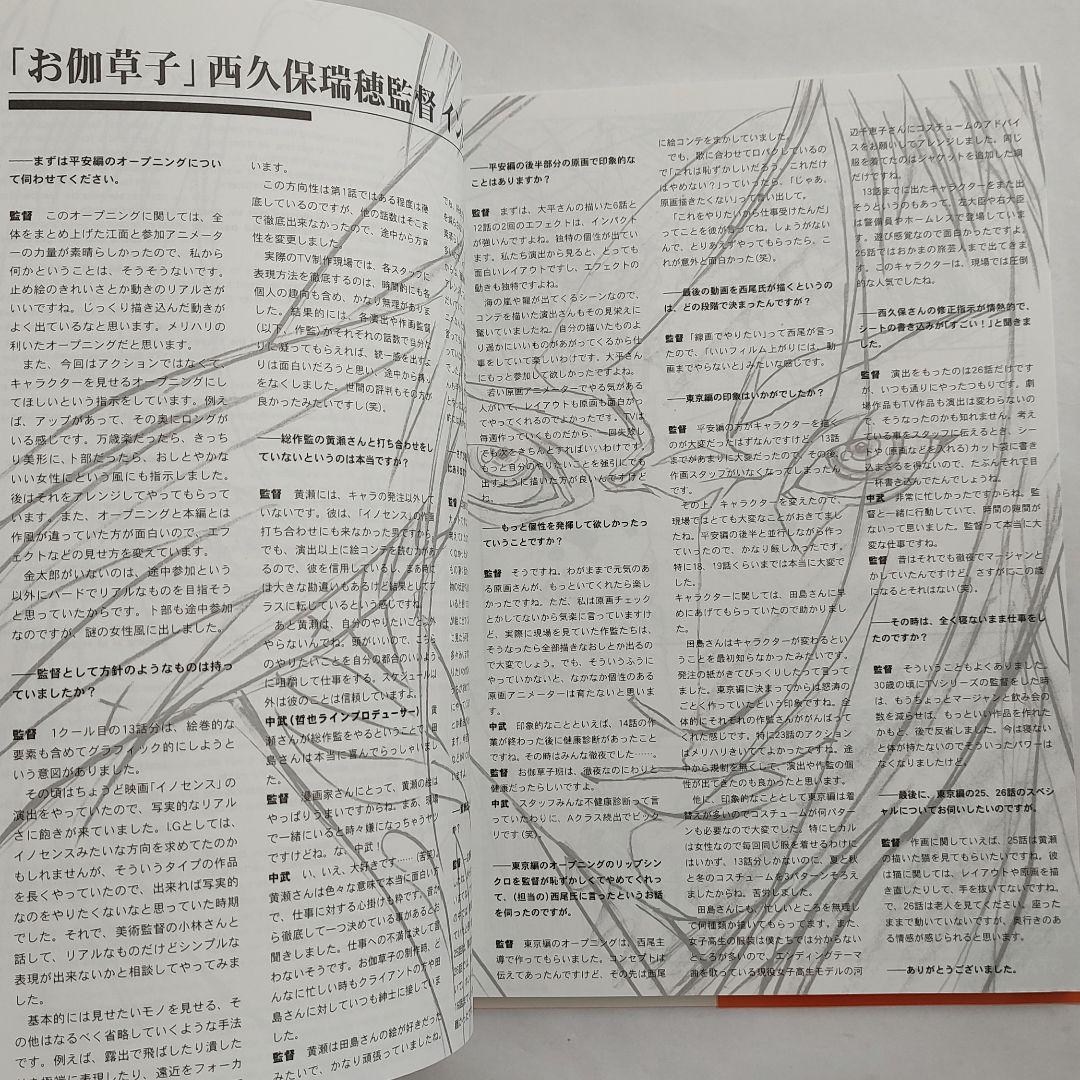 「お伽草子」西久保瑞穂監督イン
――まずは平安編のオープニングについ
て伺わせてください。
監督　このオープニングに関しては、全
体をまとめ上げた江面と参加アニメータ
ーの力量が素晴らしかったので、私から
何かということは、そうそうないです。
止め絵のきれいさとか動きのリアルさが
いいですね。じっくり描き込んだ動きが
よく出ているなと思います。メリハリの
利いたオープニングだと思います。
また、今回はアクションではなくて、
キャラクターを見せるオープニングにし
てほしいという指示をしています。例え
ば、アップがあって、その奥にロングが
いる感じです。万歳楽だったら、きっち
り美形に、卜部だったら、おしとやかな
いい女性にという風にも指示しました。
後はそれをアレンジしてやってもらって
います。また、オープニングと本編とは
作風が違っていた方が面白いので、エフ
ェクトなどの見せ方を変えています。
金太郎がいないのは、途中参加という
以外にハードでリアルなものを目指そう
と思っていたからです。卜部も途中参加
なのですが、謎の女性風に出しました。
――監督として方針のようなものは持っ
ていましたか？
監督　1クール目の13話分は、絵巻的な
要素も含めてグラフィック的にしようと
いう意図がありました。
その頃はちょうど映画「イノセンス」の
演出をやっていたので、写実的なリアル
さに飽きが来ていました。I.Gとしては、
イノセンスみたいな方向を求めてたのか
もしれませんが、そういうタイプの作品
を長くやっていたので、出来れば写実的
なのをやりたくないなと思っていた時期
でした。それで、美術監督の小林さんと
話して、リアルなものだけどシンプルな
表現が出来ないかと相談してやってみま
した。
基本的には見せたいモノを見せる、そ
の他はなるべく省略していくような手法
です。例えば、露出で飛ばしたり潰した
り極端に表現したり、遠近をフォーカ
います。
この方向性は第1話ではある程度は徹
底しているのですが、他の話数はそこま
で徹底出来なかったので、途中から方向
性を変更しました。
実際のTV制作現場では、各スタッフに
表現方法を徹底するのは、時間的にも各
個人の趣向も含め、かなり無理がありま
した。結果的には、各演出や作画監督
(以下、作監)がそれぞれの話数で自分な
りに凝ってもらえれば、統一感を出すよ
りは面白いだろうと思い、途中から縛り
をなくしました。世間の評判もその方が
良かったみたいですし(笑)。
――総作監の黄瀬さんと打ち合わせをし
ていないというのは本当ですか？
監督　黄瀬には、キャラの発注以外して
いないです。彼は、「イノセンス」の作画
打ち合わせにも来なかった男ですから。
でも、演出以上に絵コンテを読む力があ
るので、彼を信用しているし、まあ時に
は大きな勘違いもあるけど結果としてプ
ラスに転じているという感じですね。
あと黄瀬は、自分のやりたいことしか
やらないんでね。頭がいいので、こっち
のやりたいことを自分の都合のいいよう
に咀嚼して仕事をする。スケジュール以
外は彼のことは信頼していますよ。
中武(哲也ラインプロデューサー)　黄
瀬さんが総作監をやるということで、田
島さんは本当に喜んでらっしゃいまし
た。
監督　漫画家さんにとって、黄瀬の絵は
やっぱりうまいですからね。まあ、現場
で一緒にいると時々嫌になっちゃうヤツ
ですけどね。な、中武！
中武　い、いえ、大好きです……(苦笑)。
黄瀬さんは色々な意味で本当に面白い方
で、仕事に対する心掛けも粋です。昔か
ら徹底して一つ決めている事があるとお
聞きしました。仕事への不満は決して言
わないそうです。お伽草子の制作時、ど
んなに忙しい時もクライアントの方や田
島さんに対していつも紳士に接していま
した。
監督　黄瀬は田島さんの絵が好きだった
みたいで、かなり頑張っていましたね。
――平安編の後半部分の原画で印象的な
ことはありますか？
監督　まずは、大平さんの描いた6話と
12話の2回のエフェクトは、インパクト
が強いんですよね。独特の個性が出てい
ます。私たち演出から見ると、とっても
面白いレイアウトですし、エフェクトの
動きも独特ですよね。
海の嵐や龍が出てくるシーンなので、
コンテを描いた演出さんもその見栄えに
驚いていましたね。自分の描いたものよ
り遥かにいいものがあがってくるから仕
事をしていて楽しいわけです。大平さん
にもっと参加して欲しかったですよね。
若い原画アニメーターでやる気がある
人がいて、レイアウトも原画も面白がっ
てやってくれるのでよかったです。TVは
毎週作っていくものだから、一回失敗し
ても次をさらんとすればいいわけです。
もっと自分のやりたいことを強引にでも
出すように描いた方が良いんですけど
ね。
――もっと個性を発揮して欲しかったっ
ていうことですか？
監督　そうですね、わがままで元気のあ
る原画さんが、もっといてくれたら楽し
かったですね。ただ、私は原画チェック
とかしてないから気楽に言っていますけ
ど、実際に現場を見ていた作監たちは、
そうなったら全部描きなおしとか出るの
で大変でしょう。でも、そういうふうに
やっていかないと、なかなか個性のある
原画アニメーターは育たないと思いま
す。
中武　印象的なことといえば、14話の作
業が終わった後に健康診断があったこと
ですね。その時はみんな徹夜でした……。
監督　お伽草子班は、徹夜なのにわりと
健康だったらしいですよ。
中武　スタッフみんな不健康診断って言
っていたわりに、Aクラス続出でビック
リです(笑)。
――東京編のオープニングのリップシン
クロを監督が恥ずかしくてやめてくれっ
て、(担当の)西尾氏に言ったというお話
を伺ったのですが。
監督　東京編のオープニングは、西尾主
導で作ってもらいました。コンセプトは
伝えてあったんですけど、その先は西尾
に絵コンテをまかしていました。
でも、歌に合わせて口パクしているの
で「これは恥ずかしいだろう。これだけ
はやめない？」っていったら、「じゃあ、
原画描きたくない」って言い出して。
「これをやりたいから仕事受けたんだ」
ってことを彼が言ってね。しょうがない
んで、とりあえずやってもらったら、こ
れが意外と面白かった(笑)。
――最後の動画を西尾氏が描くというの
は、どの段階で決まったんですか？
監督　「線画でやりたい」って西尾が言っ
たので、「いいフィルム上がりには、動
画までやらないと」みたいな感じです。
――東京編の印象はいかがでしたか？
監督　平安編の方がキャラクターを描く
のが大変だったはずなんですけど、13話
まであまりに大変だったので、その後、
作画スタッフがいなくなってしまったん
です。
その上、キャラクターを変えたので、
現場ではとても大変なことがおきてまし
たね。平安編の後半と並行しながら作っ
ていったので、かなり厳しかったです。
特に18、19話くらいまでは本当に大変で
した。
キャラクターに関しては、田島さんに早
めにあげてもらっていたので助かりまし
た。
田島さんはキャラクターが変わるとい
うことを最初知らなかったみたいです。
発注の紙がきてびっくりしたって言って
ました。東京編に決まってからは怒濤の
ごとく作っていたという印象ですね。全
体的にそれぞれの作監さんががんばって
くれた感じです。特に23話のアクション
はメリハリきいててよかったですね。途
中から規制を無くして、演出や作監の個
性が出てきたのも良かったと思います。
他に、印象的なこととして東京編は着
替えが多いのでコスチュームが何パター
ンも必要なので大変でした。特にヒカル
は女性なので毎回同じ服を着せるわけに
はいかず、13話分しかないのに、夏と秋
と冬のコスチュームを3パターンそろえ
ましたからね。苦労しました。
田島さんにも、忙しいところを無理し
て何種類か描いてもらってます。また、
女子高生の服装は僕たちでは分からない
ところが多いので、エンディングテーマ
曲を歌っている現役女子高生モデルの河
辺千恵子さんにコスチュームのアドバイ
スをお願いしてアレンジしました。同じ
服を着てたのはジャケットを追加した綱
だけですね。
13話までに出たキャラクターをまた出
そうというのもあって、左大臣や右大臣
は警備員やホームレスで登場していま
す。遊び感覚なので面白かったですよ。
25話ではおかまの旅芸人まで出てきま
す。このキャラクターは、現場では圧倒
的な人気でしたね。
――西久保さんの修正指示が情熱的で、
シートの書き込みが「すごい！」と聞きま
した。
監督　演出をもったのは26話だけです
が、いつも通りにやったつもりです。劇
場作品もTV作品も演出は変わらないの
で、そうなったのかも知れません。考え
ている事をスタッフに伝えるとき、シー
トや(原画などを入れる)カット袋に書き
込まざるを得ないので、たぶんそれで目
一杯書き込んでたんでしょうね。
中武　非常に忙しかったですからね。監
督と一緒に行動していて、時間の隙間が
ないって思いました。監督って本当に大
変な仕事ですね。
監督　昔はそれでも徹夜でマージャンと
かしていたんですけど、さすがにこの歳
になるとそれはない(笑)。
――その時は、全く寝ないまま仕事をし
たのですか？
監督　そういうこともよくありました。
30歳の頃にTVシリーズの監督をした時
は、もうちょっとマージャンと飲み会の
数を減らせば、もっといい作品を作れた
かもと、後で反省しました。今は寝ない
と体が持たないのでそういったパワーは
なくなりましたけど。
――最後に、東京編の25、26話のスペシ
ャルについてお伺いしたいのですが。
監督　作画に関していえば、25話は黄瀬
の描いた猫を見てもらいたいですね。彼
は猫に関しては、レイアウトや原画を描
き直したりして、手を抜いてないですね。
で、26話は老人を見てください。座った
ままで動いていないですが、奥行きのあ
る情感が感じられると思います。
――ありがとうございました。